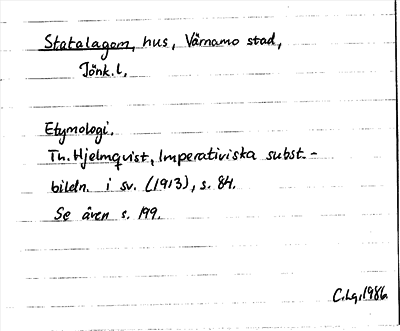 Statalagom, hus, Värnamo stad,
Jönk.l,
Etymologi.
Th. Hjelmqvist, Imperativiska subst.-
bildn. i sv. (1913), s. 84.
Se även s. 199.
C.Lg, 1986